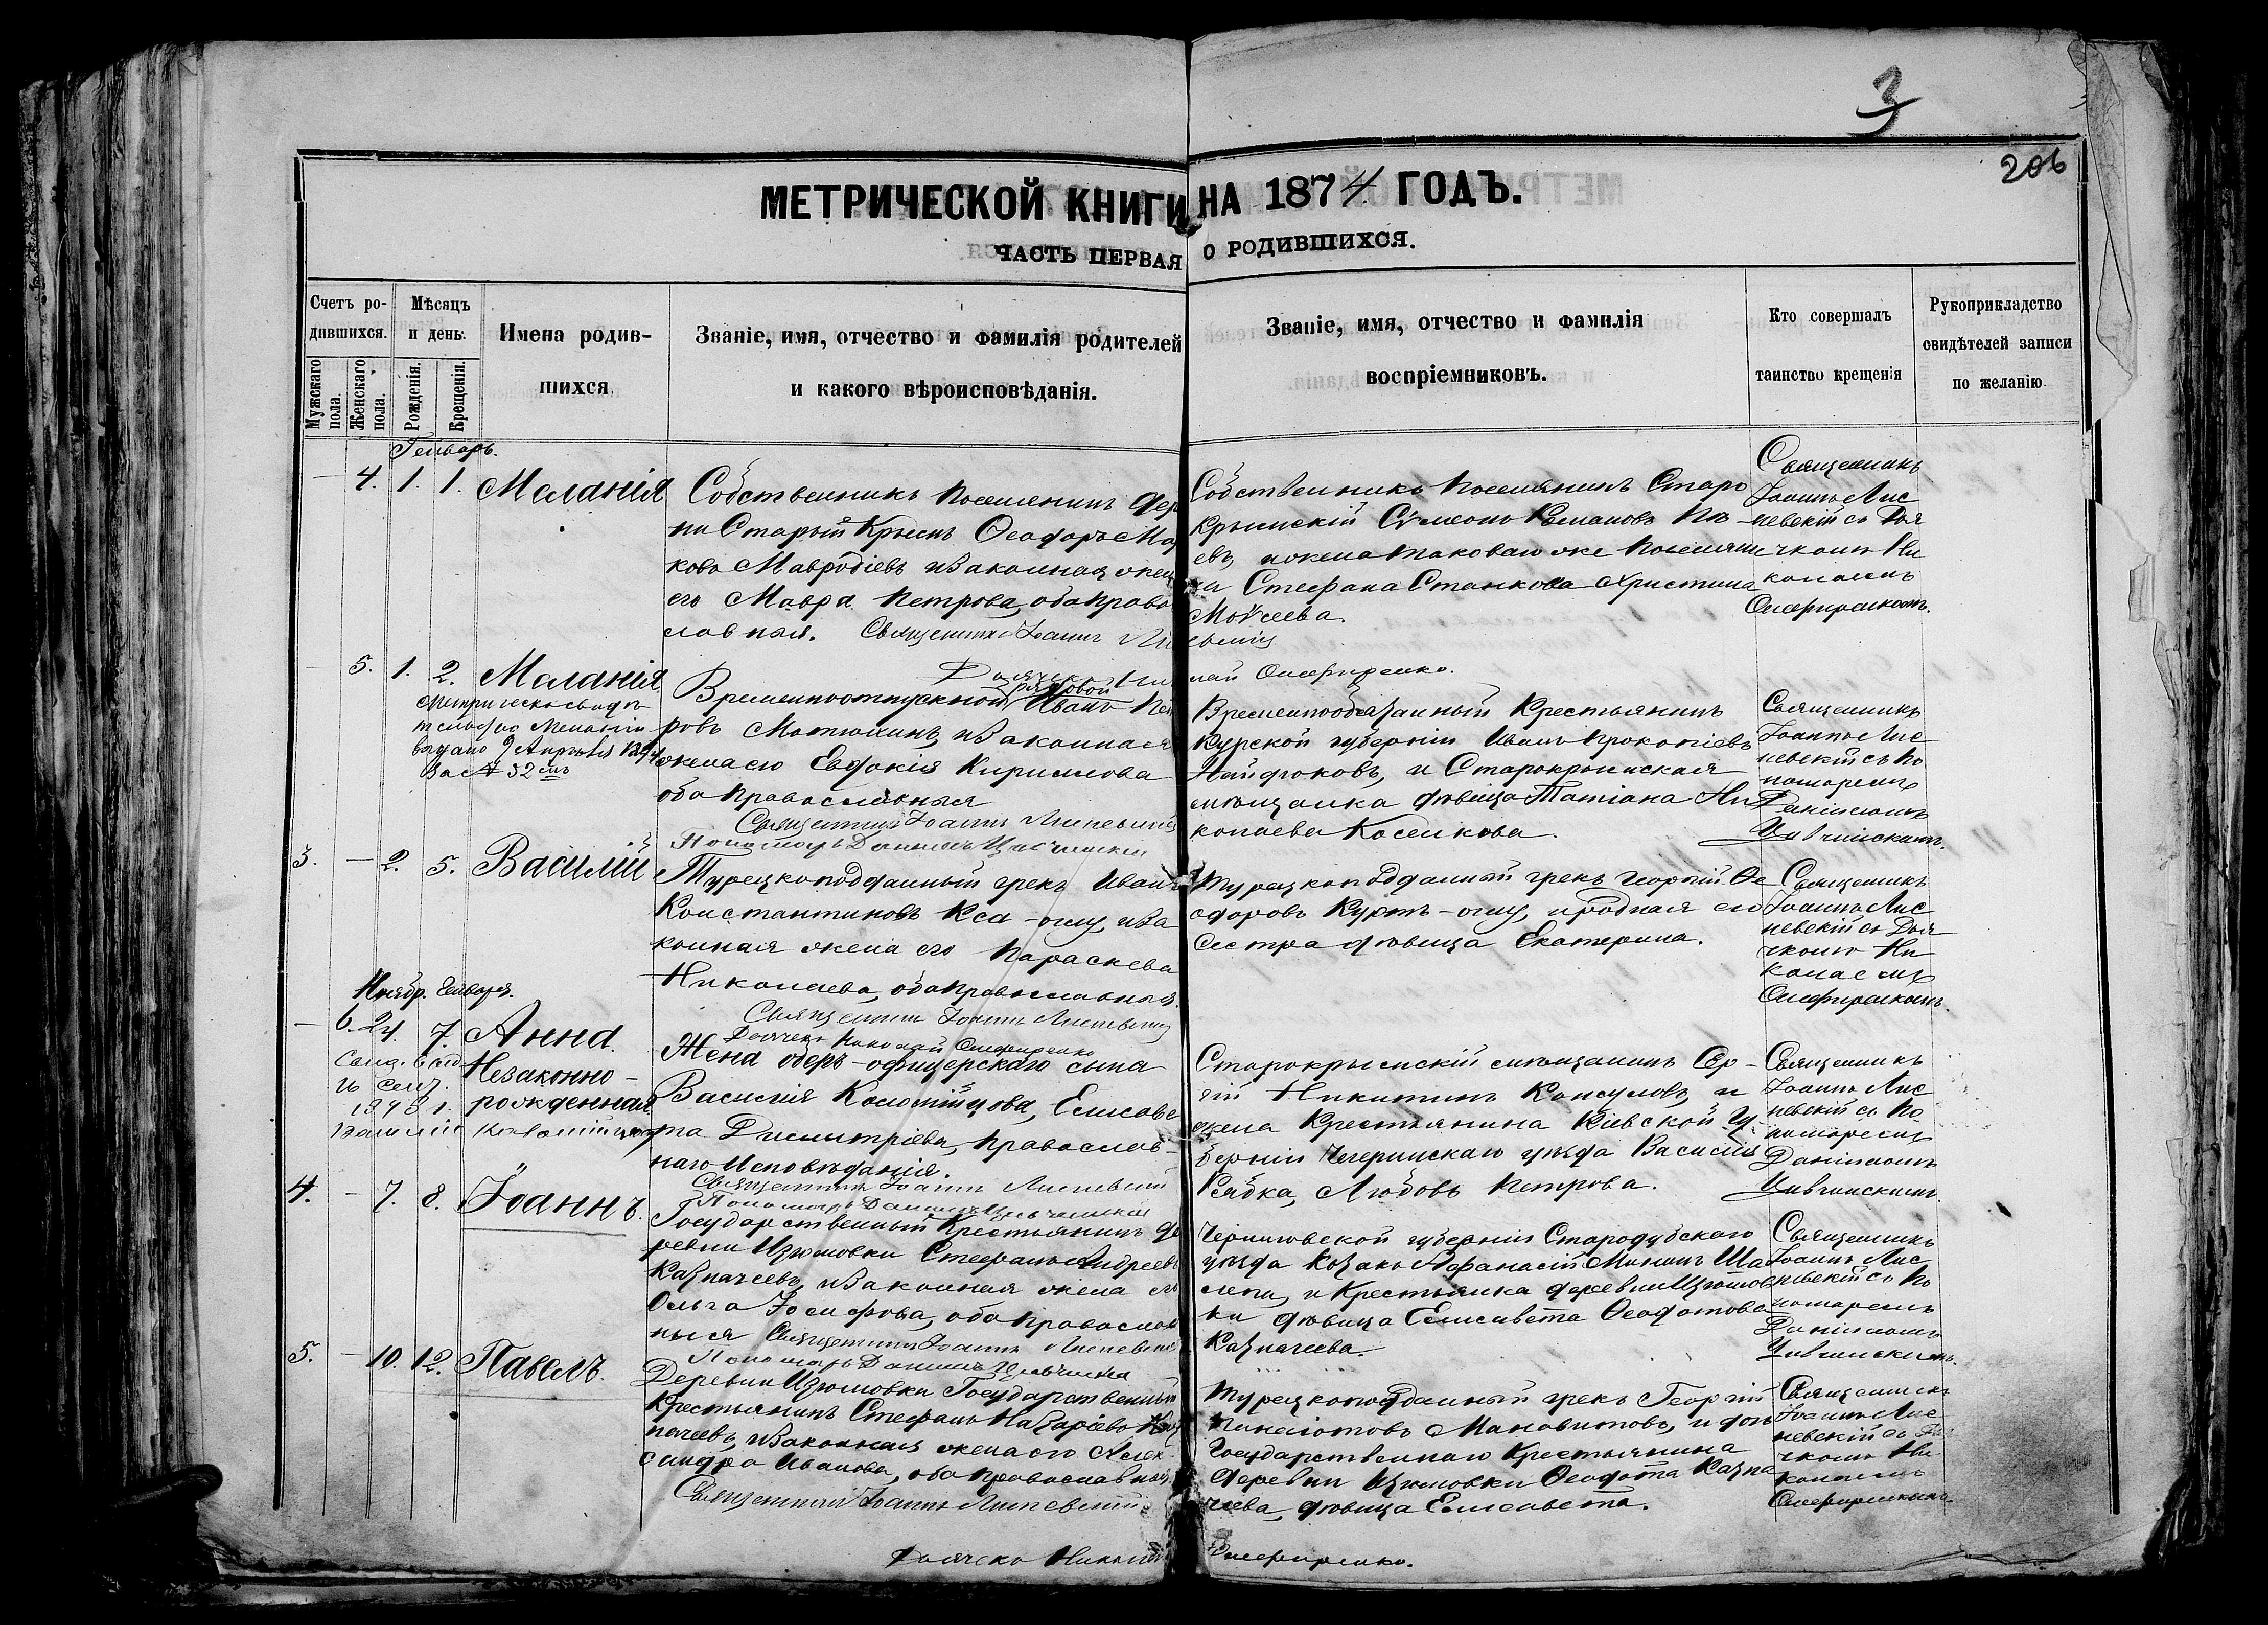 3
206
МЕТРИЧЕСКОЙ КНИГИ НА 1874 ГОДЪ.
ЧАСТЬ ПЕРВАЯ О РОДИВШИХСЯ.
Счетъ ро-
дившихся.
Мужскаго пола.
Женскаго пола.
Мѣсяцъ
и день.
Рожденія.
Крещенія.
Имена родив-
шихся
Званіе, имя, отчество и фамилія родителей
и какого вѣроисповѣданія.
Званіе, имя, отчество и фамилія
воспріемниковъ.
Кто совершалъ
таинство крещенія
Рукоприкладство
свидѣтелей записи
по желанію
Генварь.
4. 1. 1. Меланія
Собственникъ поселянинъ дер
ни Старый Крымъ Ѳеодоръ Мар
ковъ Мавродіевъ и законная жен
его Мавра Петрова, оба право
славныя. Священникъ Іоаннъ
Дьячекъ Николай Онефиренко.
Собственникъ поселянинъ Старо
крымскій Сѵмеонъ
евъ, и жена таковаго же поселяни
на Стефана Станкова Христина
Моѵсеева.
Священникъ
Іоаннъ Лис
невскій съ Дья
чкомъ Ни
колаемъ
Онефиренкомъ.
5. 1. 2. Меланія
выдано 9 Апрѣля
за № 32
Временноотпускной рядовой Иванъ Пет
ровъ Матюхинъ, и законная
жена его Евдокія Кириллова
оба православныя
Священникъ Іоаннъ Лисневскій
Пономарь Даніилъ
Временнообязанный крестьянинъ
Курской губерніи Иванъ Прокопіевъ
Найфоковъ, и Старокрымская
мѣщанка дѣвица Татіана Ни
колаева Косенкова.
Священникъ
Іоаннъ Лис
невскій съ По
номаремъ
Даніиломъ
3. — 2. 5. Василій
Турецкоподданный грекъ Иванъ
Константиновъ Кса-оглу, и за
конная жена его Параскева
Николаева, оба православныя.
Священникъ Іоаннъ Лисневскій
Дьячекъ Николай Онефиренко
Турецкоподданный грекъ Георгій Ѳе
одоровъ Куртъ-оглу, и родная его
сестра дѣвица Екатерина.
Священникъ
Іоаннъ Лис
невскій съ Дья
чкомъ Ни
колаемъ
Онефиренкомъ.
Ноябр. Генваря.
— 6. 24. 7. Анна
Незаконно-
рожденная
Жена оберъ-офицерскаго сына
Василія Коломійцова, Елисаве
та Димитріева, православ-
наго исповѣданія.
Священникъ Іоаннъ Лисневскій
Пономарь Даніилъ
Старокрымскій мѣщанинъ Сер-
гій Никитинъ Консуловъ, и
жена крестьянина Кіевской гу-
берніи Чегиринскаго уѣзда Василія
Рябка, Любовь Петрова.
Священникъ
Іоаннъ Лис
невскій съ По
номаремъ
Даніиломъ
4. — 7. 8. Іоаннъ.
Государственный крестьянинъ де
ревни Изюмовки Стефанъ Андреевъ
Казначеевъ, и законная жена его
Ольга Іосифова, оба православ
ныя Священникъ Іоаннъ Лисневскій
Пономарь Даніилъ
Черниговской губерніи Стародубскаго
уѣзда козакъ Афанасій Мининъ Ша
лепа, и крестьянка деревни Изюмов
ки дѣвица Елисавета Ѳеодотова
Казначеева.
Священникъ
Іоаннъ Лис
невскій съ По
номаремъ
Даніиломъ
5. — 10. 12. Павелъ.
Деревни Изюмовки Государственный
крестьянинъ Стефанъ Назаріевъ Каз
начеевъ, и законная жена его Алек
сандра Иванова, оба православныя
Священникъ Іоаннъ Лисневскій
Дьячекъ Николай Онефиренко.
Турецкоподданный грекъ Георгій
Панаіотовъ Манавитовъ, и дочь
Государственнаго крестьянина
деревни Изюмовки Ѳеодота Казна
чеева, дѣвица Елисавета.
Священникъ
Іоаннъ Лис
невскій съ Дья
чкомъ Ни
колаемъ
Онефиренкомъ.